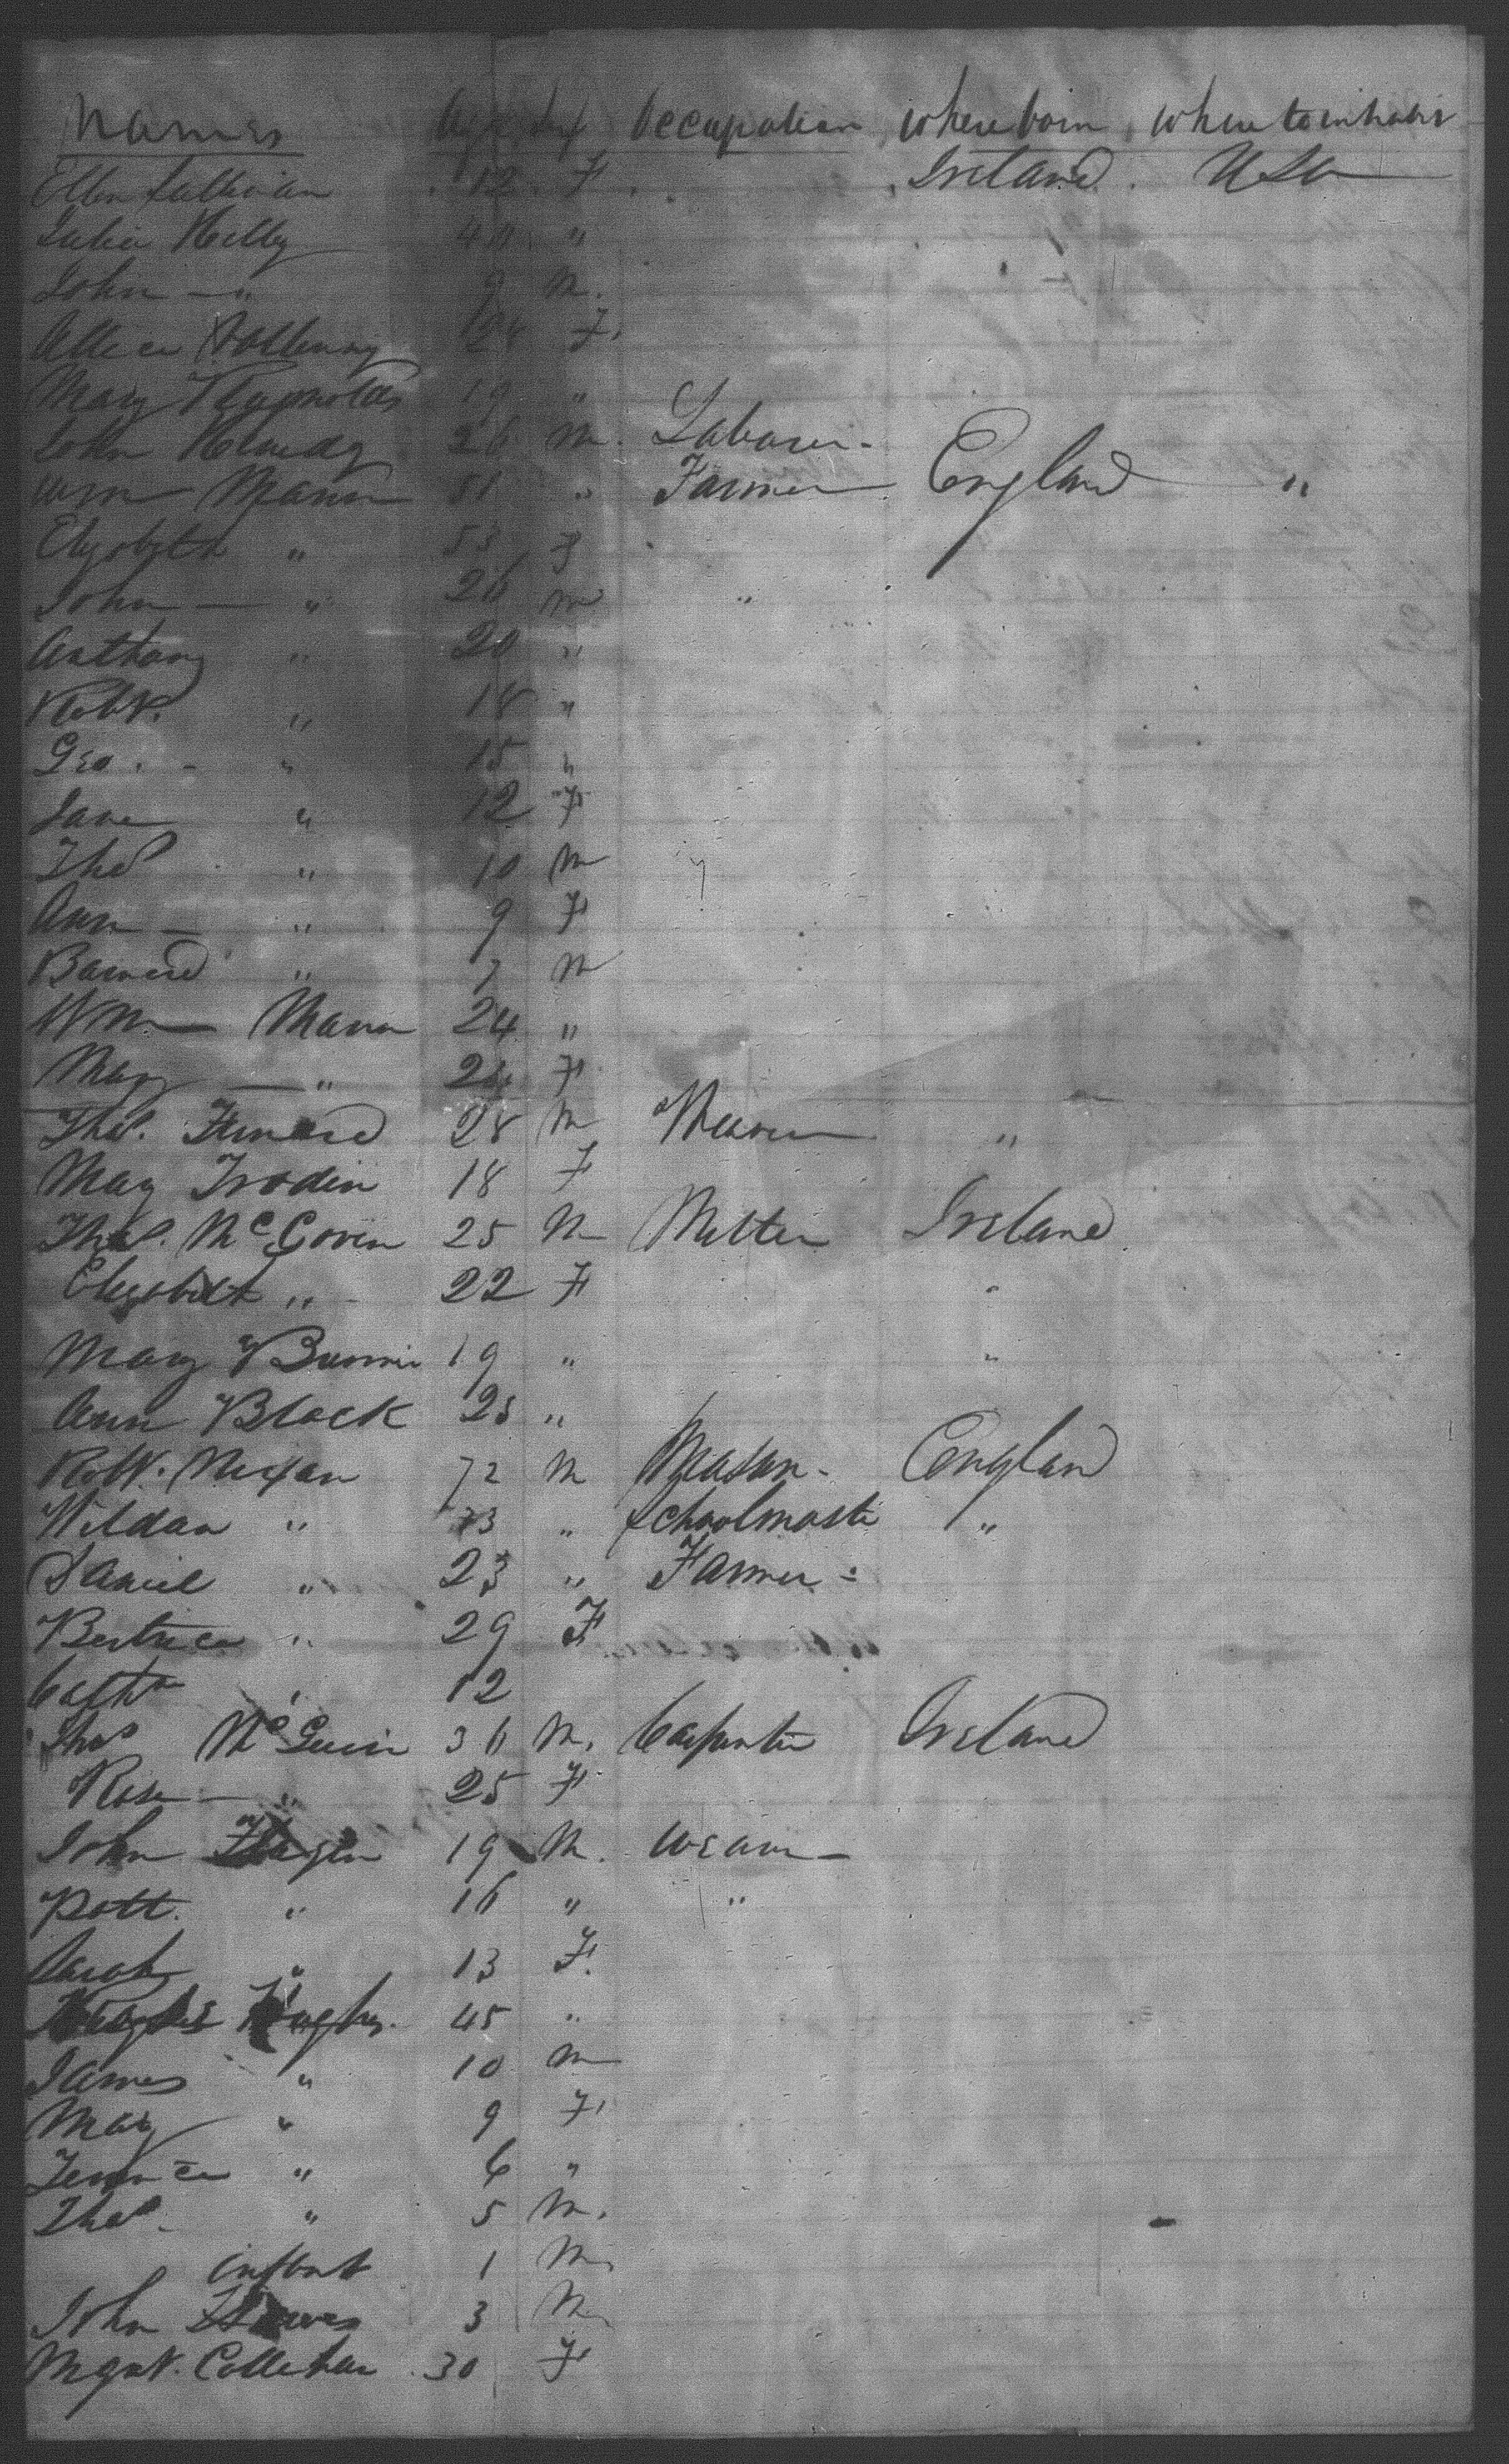 Names Age Sex Occupation where born where to inhabit
Ellen Sullivan 12 F Ireland USA
Julia Kelly 40 "
John — " 9 M.
24 F.
Mary Reynolds 19 "
John Kennedy 26 M. Laborer -
Wm Mann 51 " Farmer England "
Elizabeth " 53 F
John — " 26 M "
Anthony " 20 "
Robt. " 18 "
Geo. - " 15 "
Jane " 12 F
Thos " 10 M
Ann — " 9 F
Barnard " 7 M
Wm Mann 24 "
Mary — " 24 F
Thos. 28 M Weaver "
Mary Trodin 18 F
Thos. McGovern 25 M Ireland
Elizabeth " 22 F "
Mary 19 " "
Ann Black 25 "
Robt. Nixon 72 M Mason - England
" 73 " Schoolmaster "
Daniel " 23 " Farmer -
" 29 F
Cath " 12
Thos McGuin 36 M. Carpenter Ireland
Rose — " 25 F
John 19 M. Weaver
Patt. " 16 " "
Sarah " 13 F.
Hughes 45 "
James " 10 M
Mary " 9 F
" 6 "
Thos. " 5 M.
Infant 1 M.
John 3 M
Mgrt. Callehan 30 F